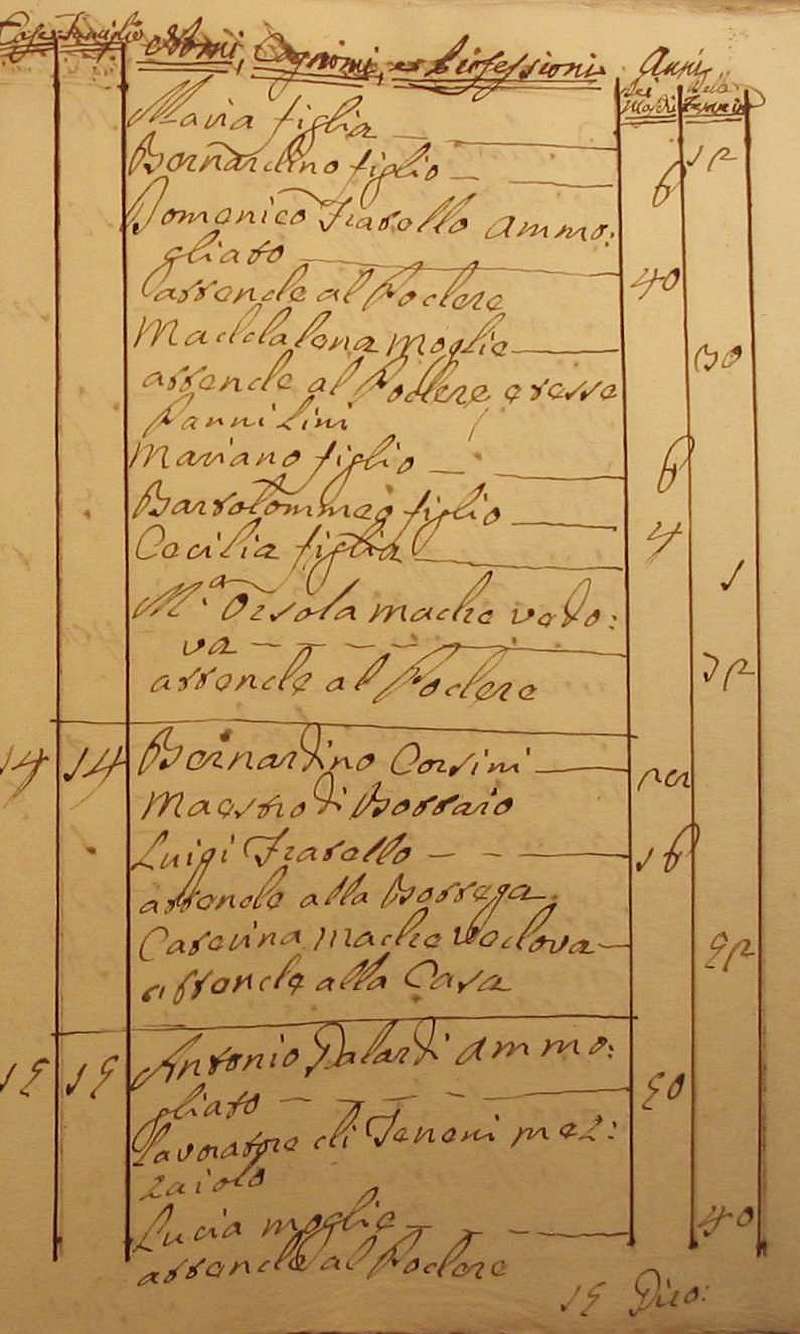 Case Famiglie Nomi, Cognomi, e Professioni Anni
dei Maschi delle Femmine
Maria figlia 12
Bernardino figlio 6
Domenico Fratello Ammo:
gliato 40
attende al Podere
Maddalena moglie 30
attende al Podere, e tesse
Panni Lini
Mariano figlio 6
Bartolommeo figlio 4
Cecilia figlia 1
M.a Orsola madre vedo:
va 72
attende al Podere
14 14 Bernardino Corsini 22
Maestro di Bottaio
Luigi Fratello 16
attende alla Bottega
Caterina madre vedova 52
attende alla Casa
15 15 Antonio Palardi Ammo:
gliato 50
Lavoratore di Terreni mez:
zaiolo
Lucia moglie 40
attende al Podere
15 Dico: